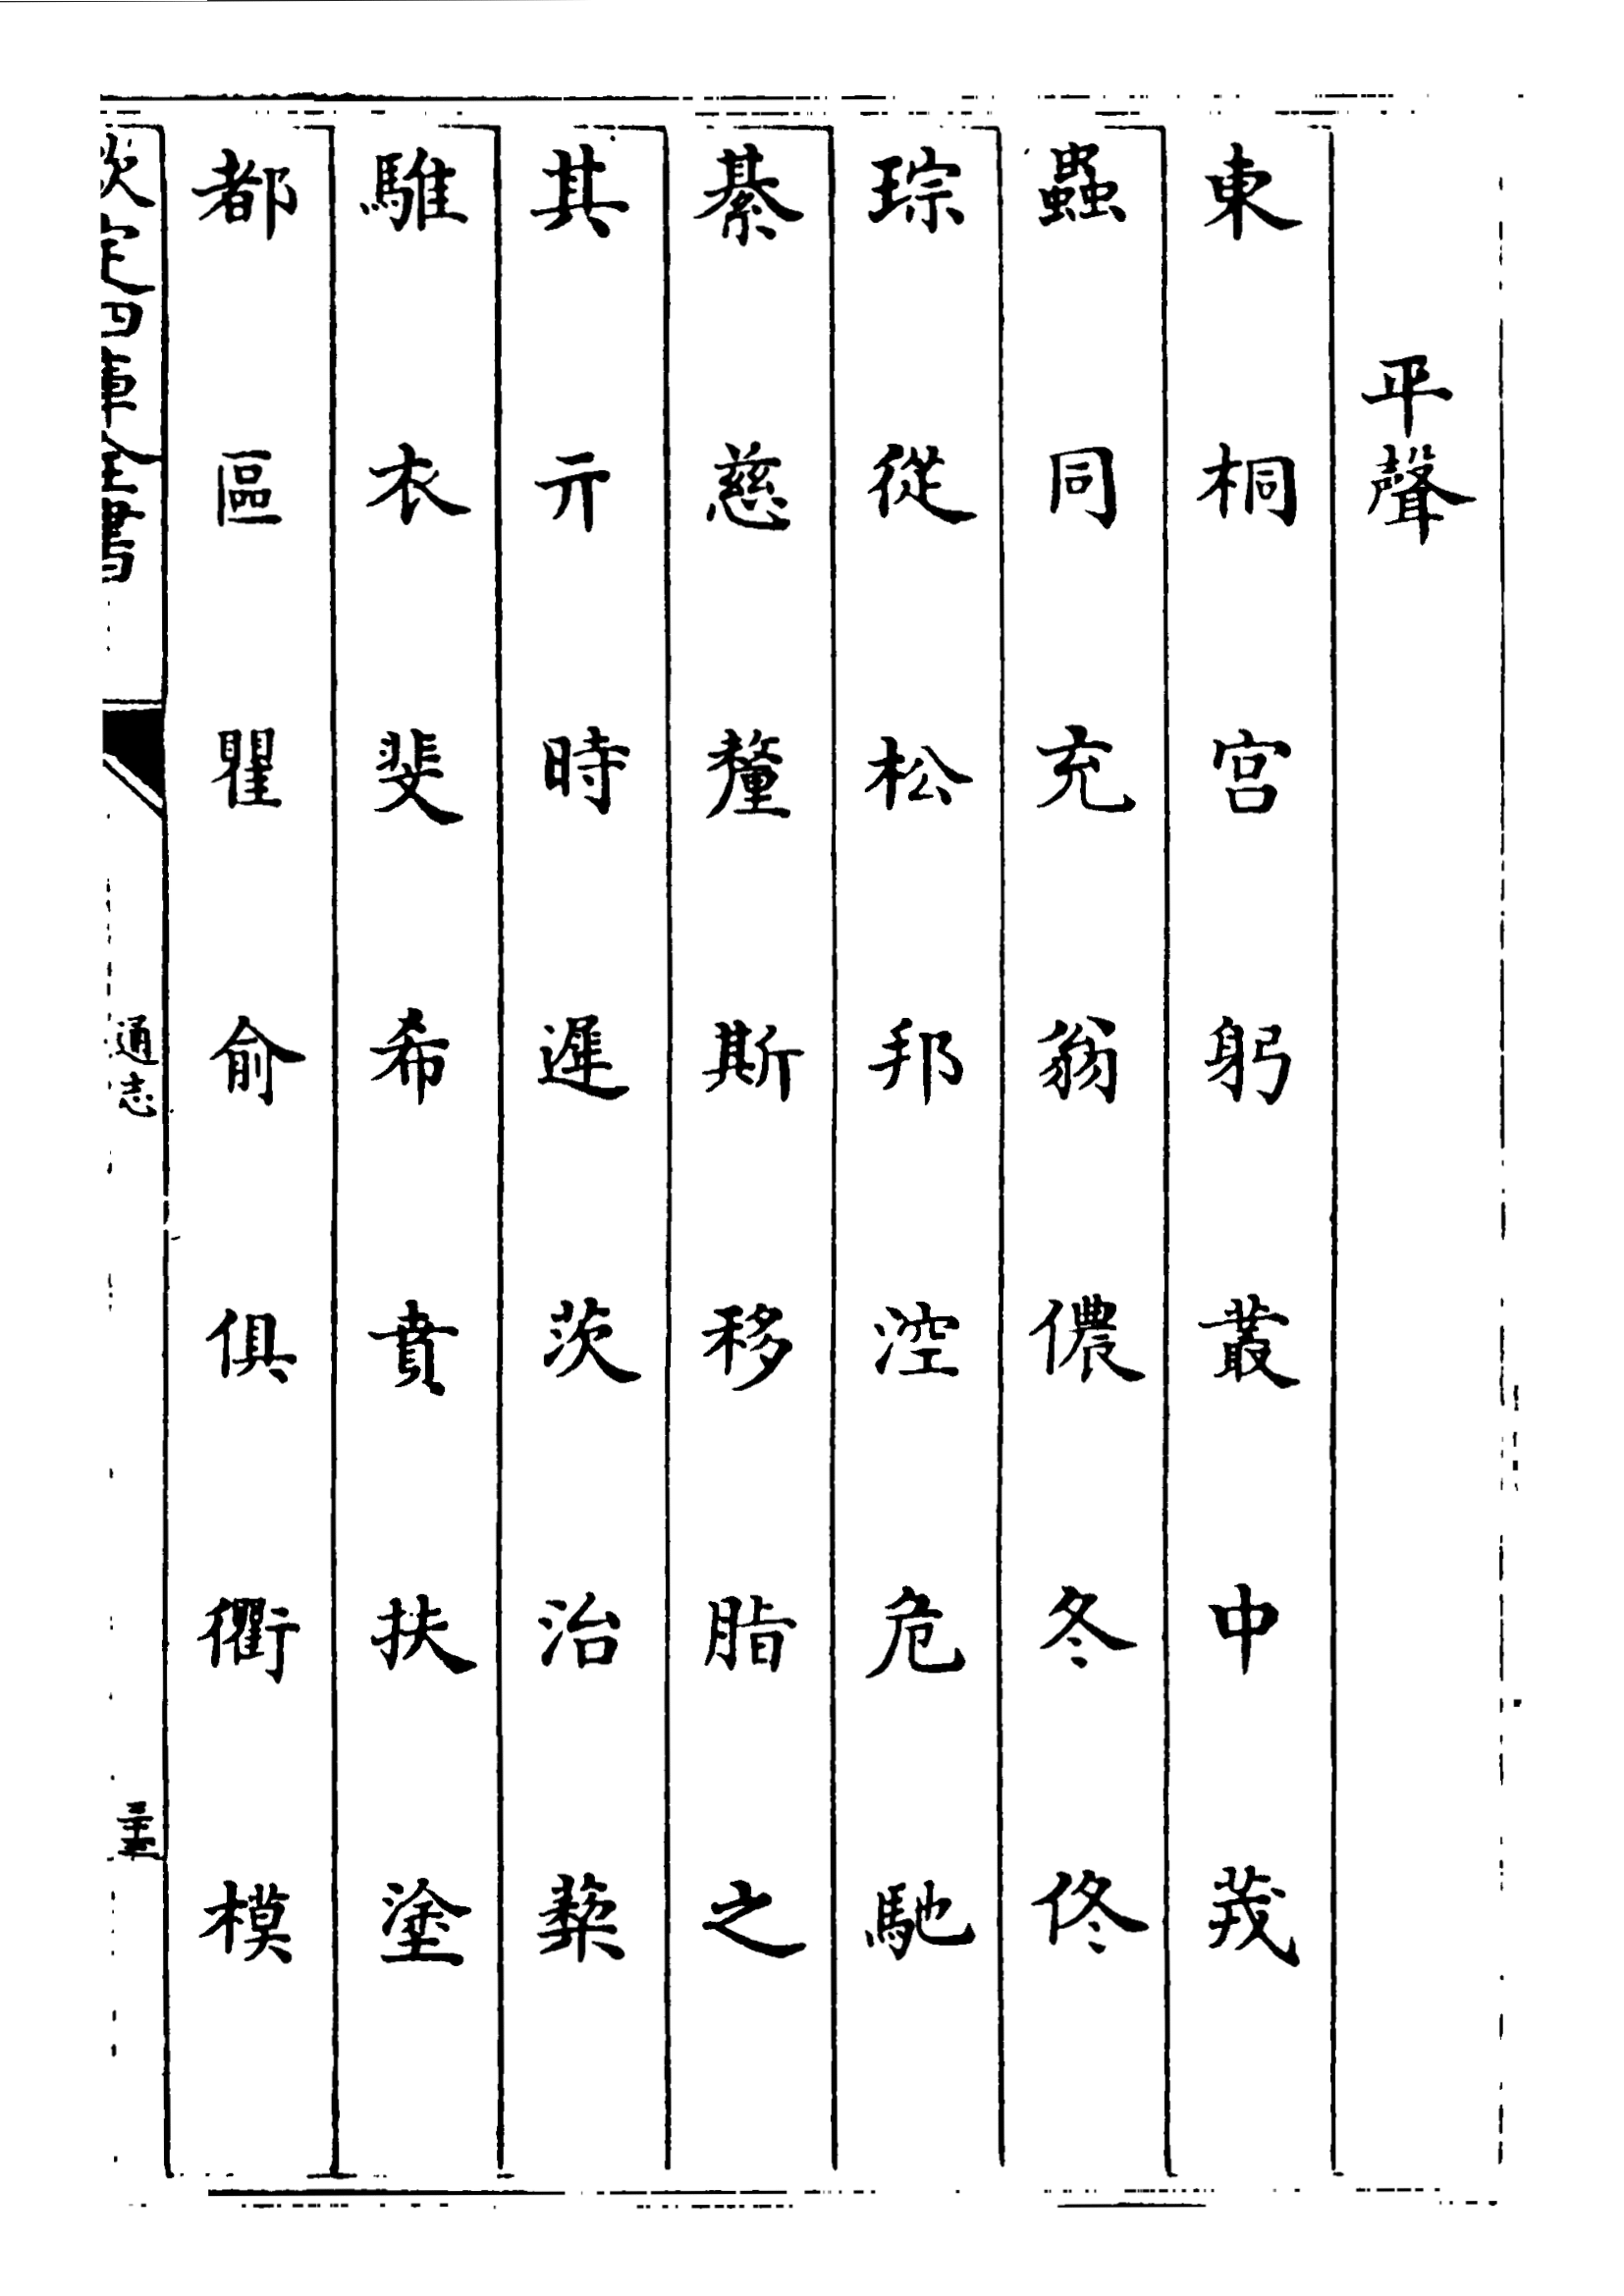 平聲
東桐宮躬叢中茙
蟲同充翁儂冬佟
琮從松邦涳危馳
綦慈釐斯移脂之
其亓時遲茨治蔾
騅衣斐希賁扶塗
都區瞿俞俱衢模
欽定四庫全書
通志